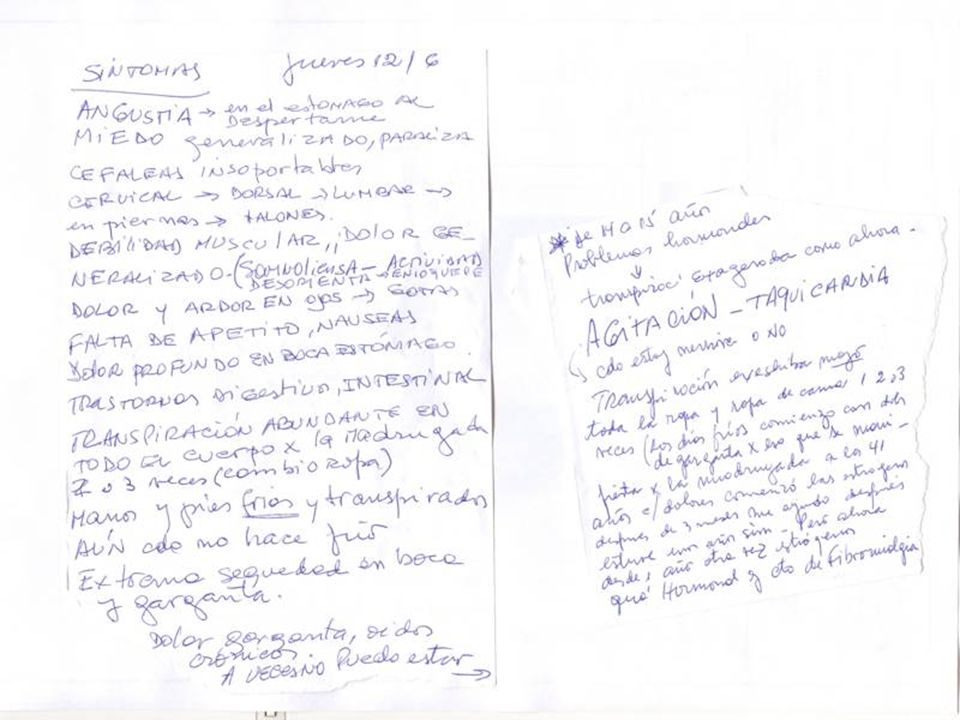 SÍNTOMAS jueves 12/6
ANGUSTIA → en el estomago AL
Despertarme
MIEDO generalizado, paraliza
CEFALEAS insoportables
CERVICAL → DORSAL → LUMBAR →
en piernas → TALONES.
DEBILIDAD MUSCULAR, DOLOR GE-
NERALIZADO - (SOMNOLIENSA - ACTIVIDAD
DESORIENTA → ENLOQUECE
DOLOR y ARDOR EN OJOS → GOTAS
FALTA DE APETITO, NAUSEAS
DOLOR PROFUNDO EN BOCA ESTÓMAGO
TRASTORNOS Digestivo, INTESTINAL
TRANSPIRACIÓN ABUNDANTE EN
TODO EL cuerpo x la Madrugada
2 o 3 veces (cambio ropa)
Manos y pies frios y transpirados
AÚN cdo no hace frío
Extrema sequedad en boca
y garganta.
Dolor garganta, oidos
crónicos.
A VECES NO Puedo estar →
* de años
Problemas hormonales
↓
transpiraci exagerada como ahora -
AGITACIÓN - TAQUICARDIA
cdo estoy nerviosa o NO
Transpiración
toda la ropa y ropa de cama 1 2 o 3
veces (Los días fríos comienzo con dolor
de garganta x eso que se mani-
fiesta x la madrugada a los 41
años c/ dolores comenzó las estrogenos
después de 3 meses me ayudo después
estuve un año sin - Pero ahora
desde 1 año otra vez estrógenos
Hormonal y cto de Fibromialgia